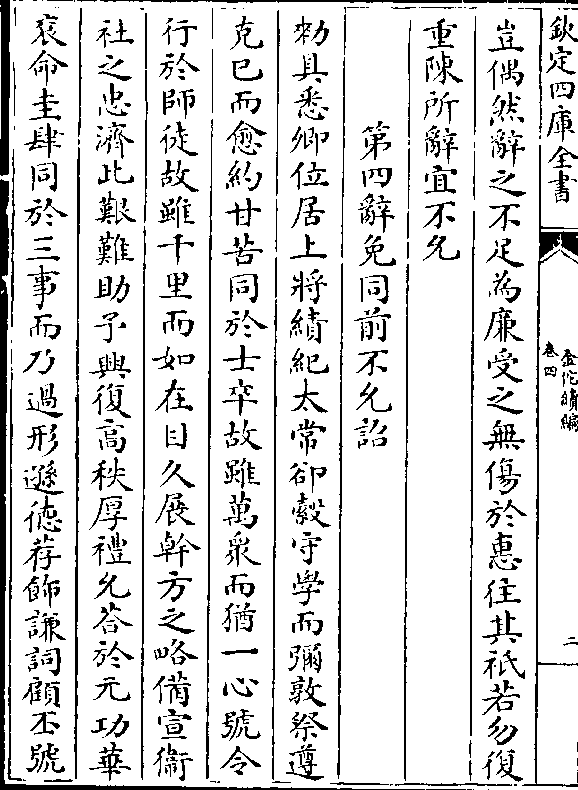 欽定四庫全書
金佗續編
卷四
二
豈偶然辭之不足為廉受之無傷於惠往其祇若勿復
重陳所辭宜不允
第四辭免同前不允詔
勑具悉卿位居上將績紀太常郤縠守學而彌敦祭遵
克已而愈約甘苦同於士卒故雖萬衆而猶一心號令
行於師徒故雖千里而如在目久展幹方之略備宣衞
社之忠濟此艱難助予興復高秩厚禮允荅於元功華
衮命圭肆同於三事而乃過形遜徳荐飾謙詞顧丕號